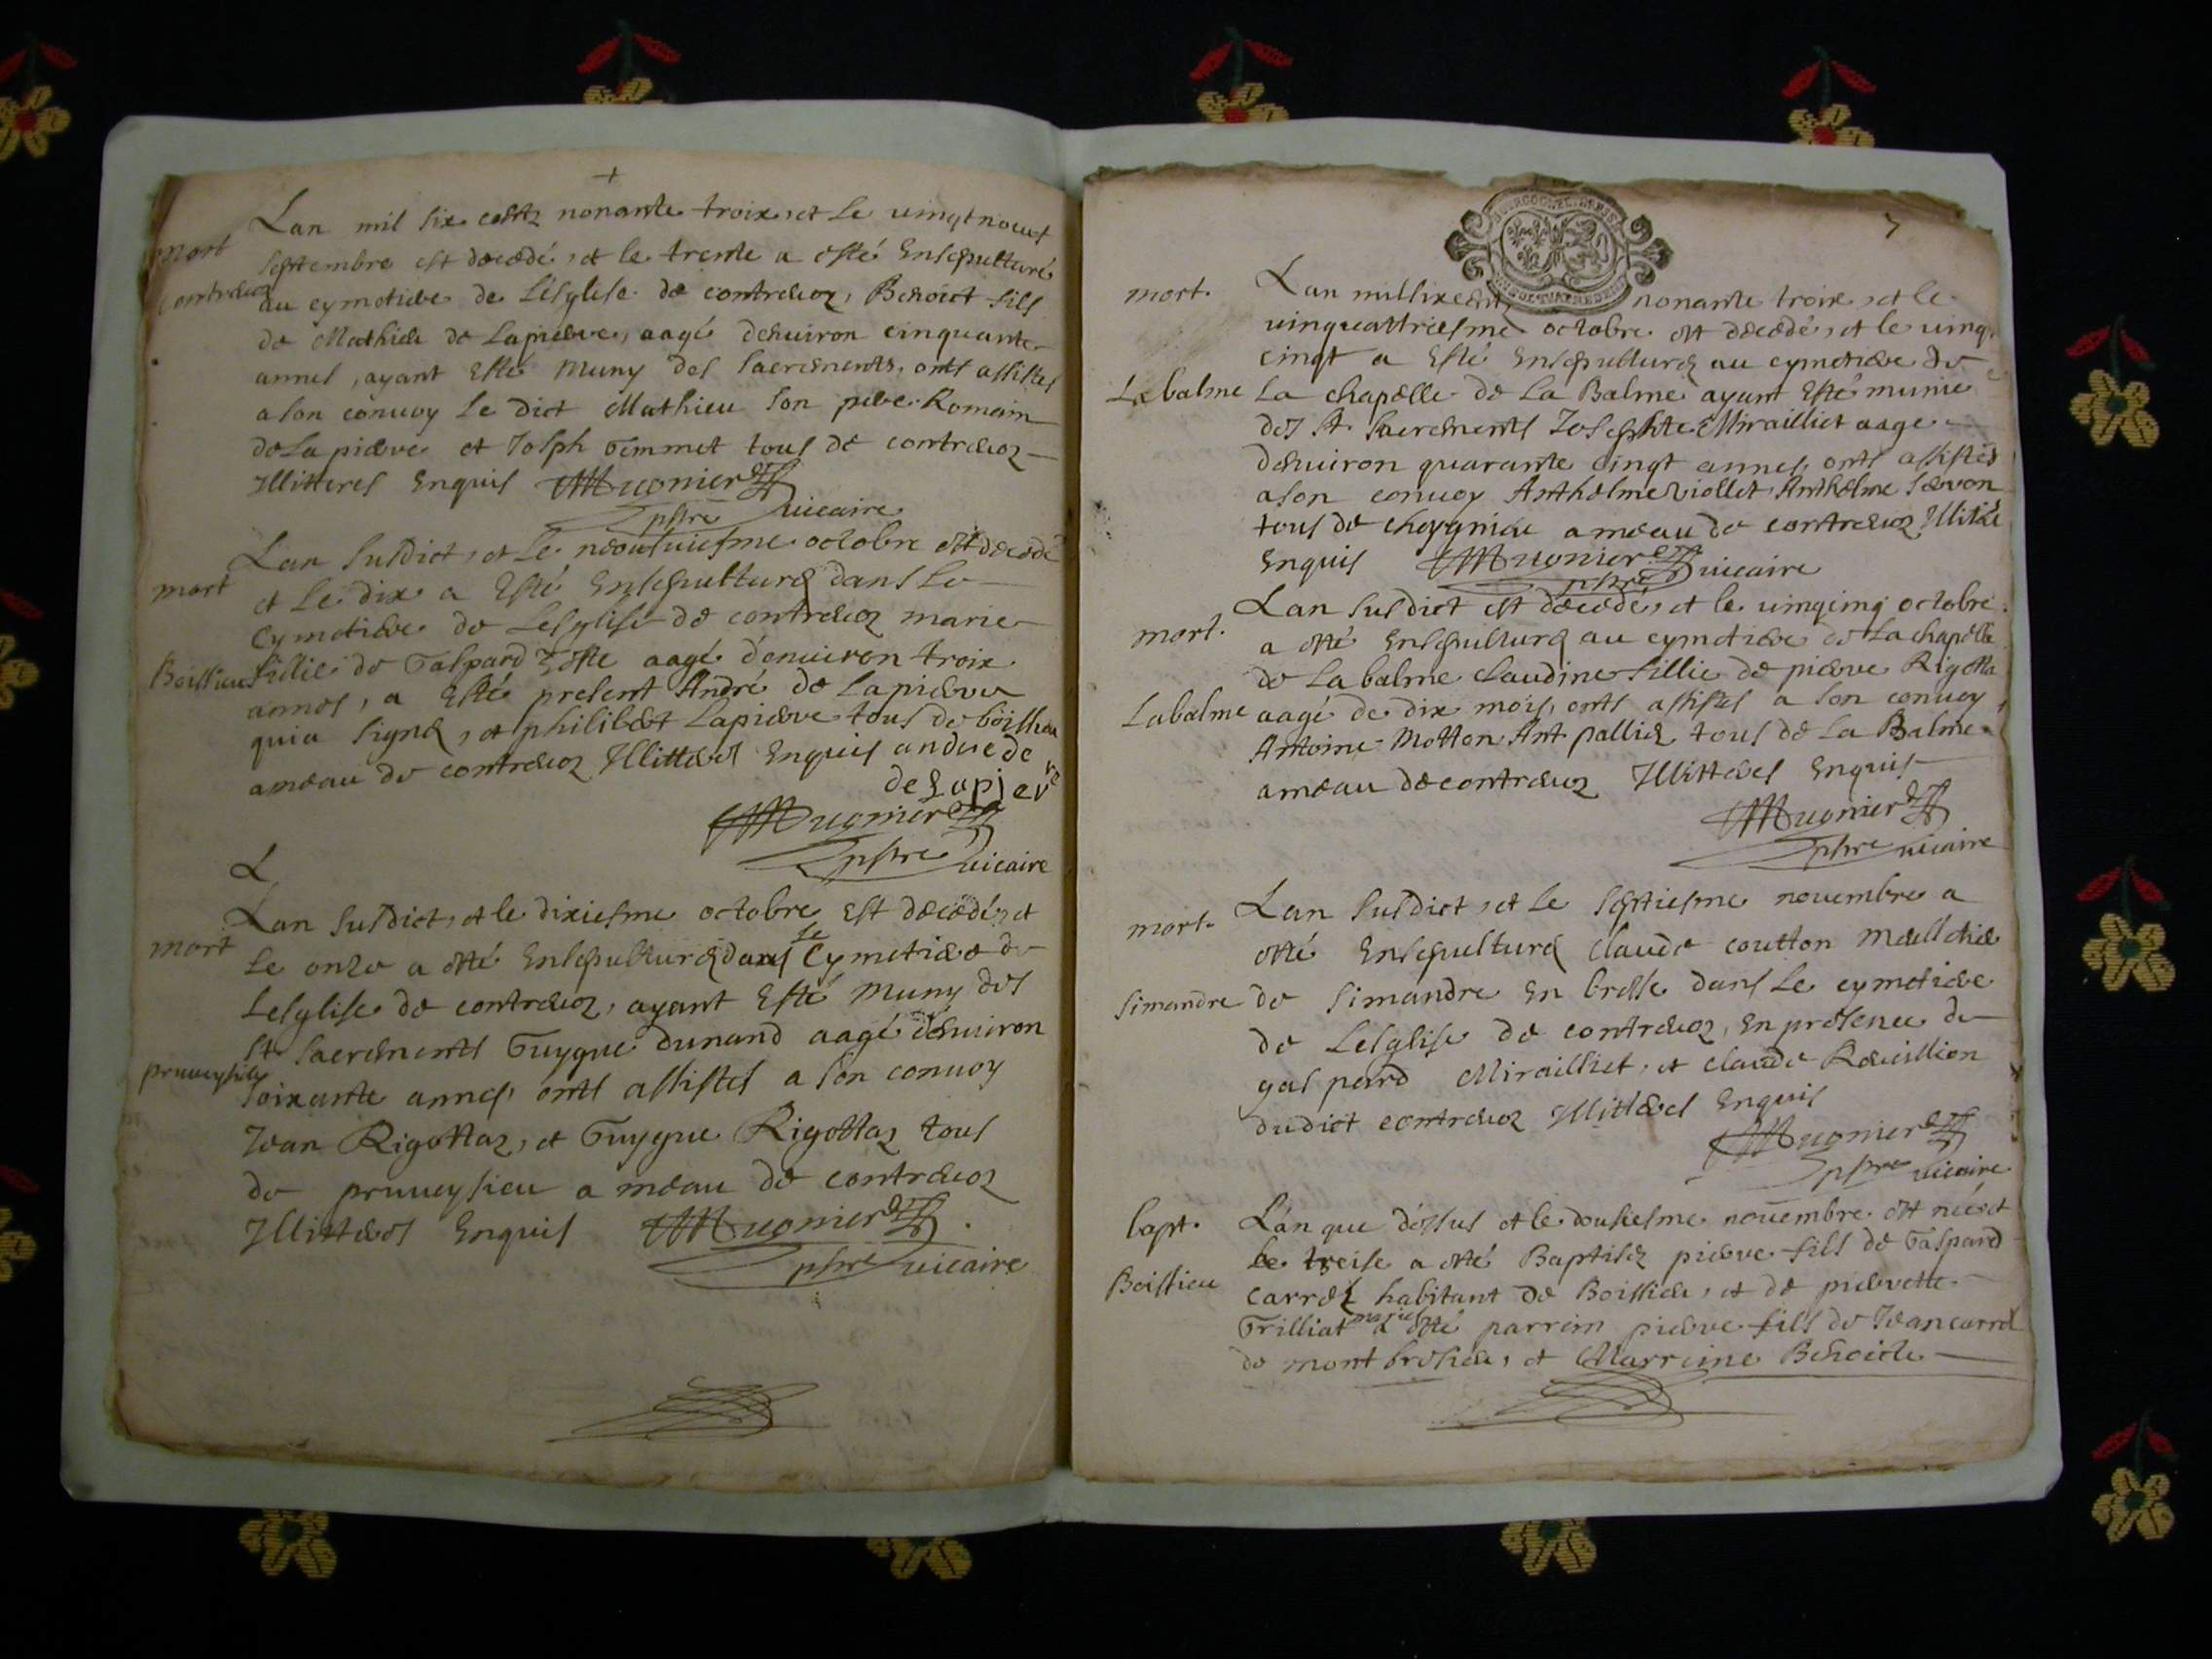 +
Lan mil six centz nonante troix, et le vingt noeuf
mort
septembre est decedé, et le trente a esté Ensepulturé
Contrevoz
au cymetiere de Lésglise de contrevoz, Benoict fils
de Mathieu de Lapierre, aagé denuiron cinquante
annes, ayant Esté muny des sacrements, onts assistes
a son conuoy le dict Mathieu son pere Romain
de Lapierre et Joseph Gemmet tous de contrevoz
Illitteres Enquis Mugnier
pstre vicaire
Lan susdict, et le neoufuiesme octobre est decedé
mort
et le dix a Esté Ensepulturé dans le
Cymetiere de Lesglise de contrevoz marie
Boissieu
fillie de Gaspard aagé denuiron troix
annes, a Esté present André de Lapierre
qui a signé, et philibert Lapierre tous de boissieu
ameau de contrevoz Illitteres Enquis andre de
de Lapierre
Mugnier
pstre vicaire
L
Lan susdict, et le dixiesme octobre est decedé, et
mort
le onze a esté Ensepulturé dans le Cymetiere de
Lesglise de contrevoz, ayant Esté muny des
st sacrements Guygue dunand aagé denuiron
pruueysieu
soixante annes, onts assistes a son conuoy
Jean Rigottaz, et Guygue Rigottaz tous
de pruueysieu ameau de contrevoz
Illitteres Enquis Mugnier
pstre vicaire
7
mort.
Lan mil six cents nonante troix, et le
vingquattriesme octobre est decedé, et le vingt
cinqt a Esté Ensepulturé au cymetiere de
Labalme
La chapelle de La Balme ayant Esté munie
des st sacrements Josephte Mirailliet aage
denuiron quarante cinqt annes, onts assistés
a son conuoy Anthelme Viollet Anthelme
tous de cheygnieu ameau de contrevoz
Enquis Mugnier
pstre vicaire
Lan susdict est decedé, et le vingcinq octobre
mort.
a esté Ensepulturé au cymetiere de La chapelle
de La balme Claudine fillie de pierre Rigotta
Labalme
aagé de dix mois, onts assistes a son conuoy
Antoine Motton Ant pallier tous de La Balme
ameau de contrevoz Illitteres Enquis
Mugnier
pstre vicaire
mort.
Lan susdict, et le septiesme novembre a
esté Ensepulturé Claude coutton
Simandre
de Simandre en bresse dans le cymetiere
de Lesglise de contrevoz, en presence de
gaspard Mirailliet, et claude Reveillion
dudict contrevoz Illitteres Enquis
Mugnier
pstre vicaire
bapt.
Lan que dessus et le dousiesme nouembre est né, et
le treise a esté Baptisé pierre fils de Gaspard
Boissieu
Carrel habitant de Boissieu, et de pierrette
Trilliat mariés a esté parrein pierre fils de Jean carrel
de mont bresieu, et Marreine Benoicte